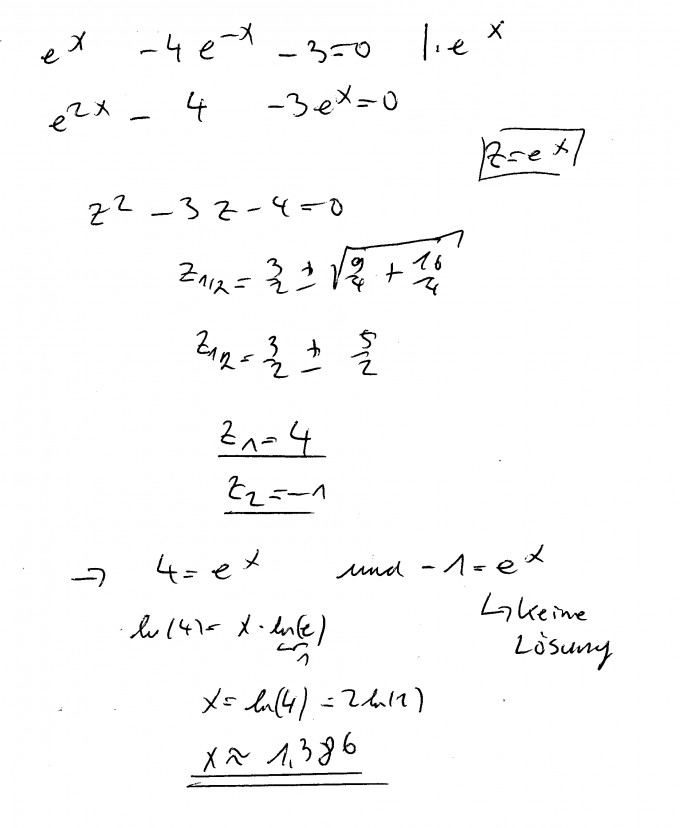 eˣ - 4 e⁻ˣ - 3 = 0 |· eˣ
e²ˣ - 4 - 3eˣ = 0
z = eˣ
z² - 3z - 4 = 0
z₁/₂ = 3/2 ± √(9/4 + 16/4)
z₁₂ = 3/2 ± 5/2
z₁ = 4
z₂ = -1
→ 4 = eˣ und -1 = eˣ
↳ keine
Lösung
ln(4) = x · ln(e)
1
x = ln(4) = 2 ln(2)
x ≈ 1,386